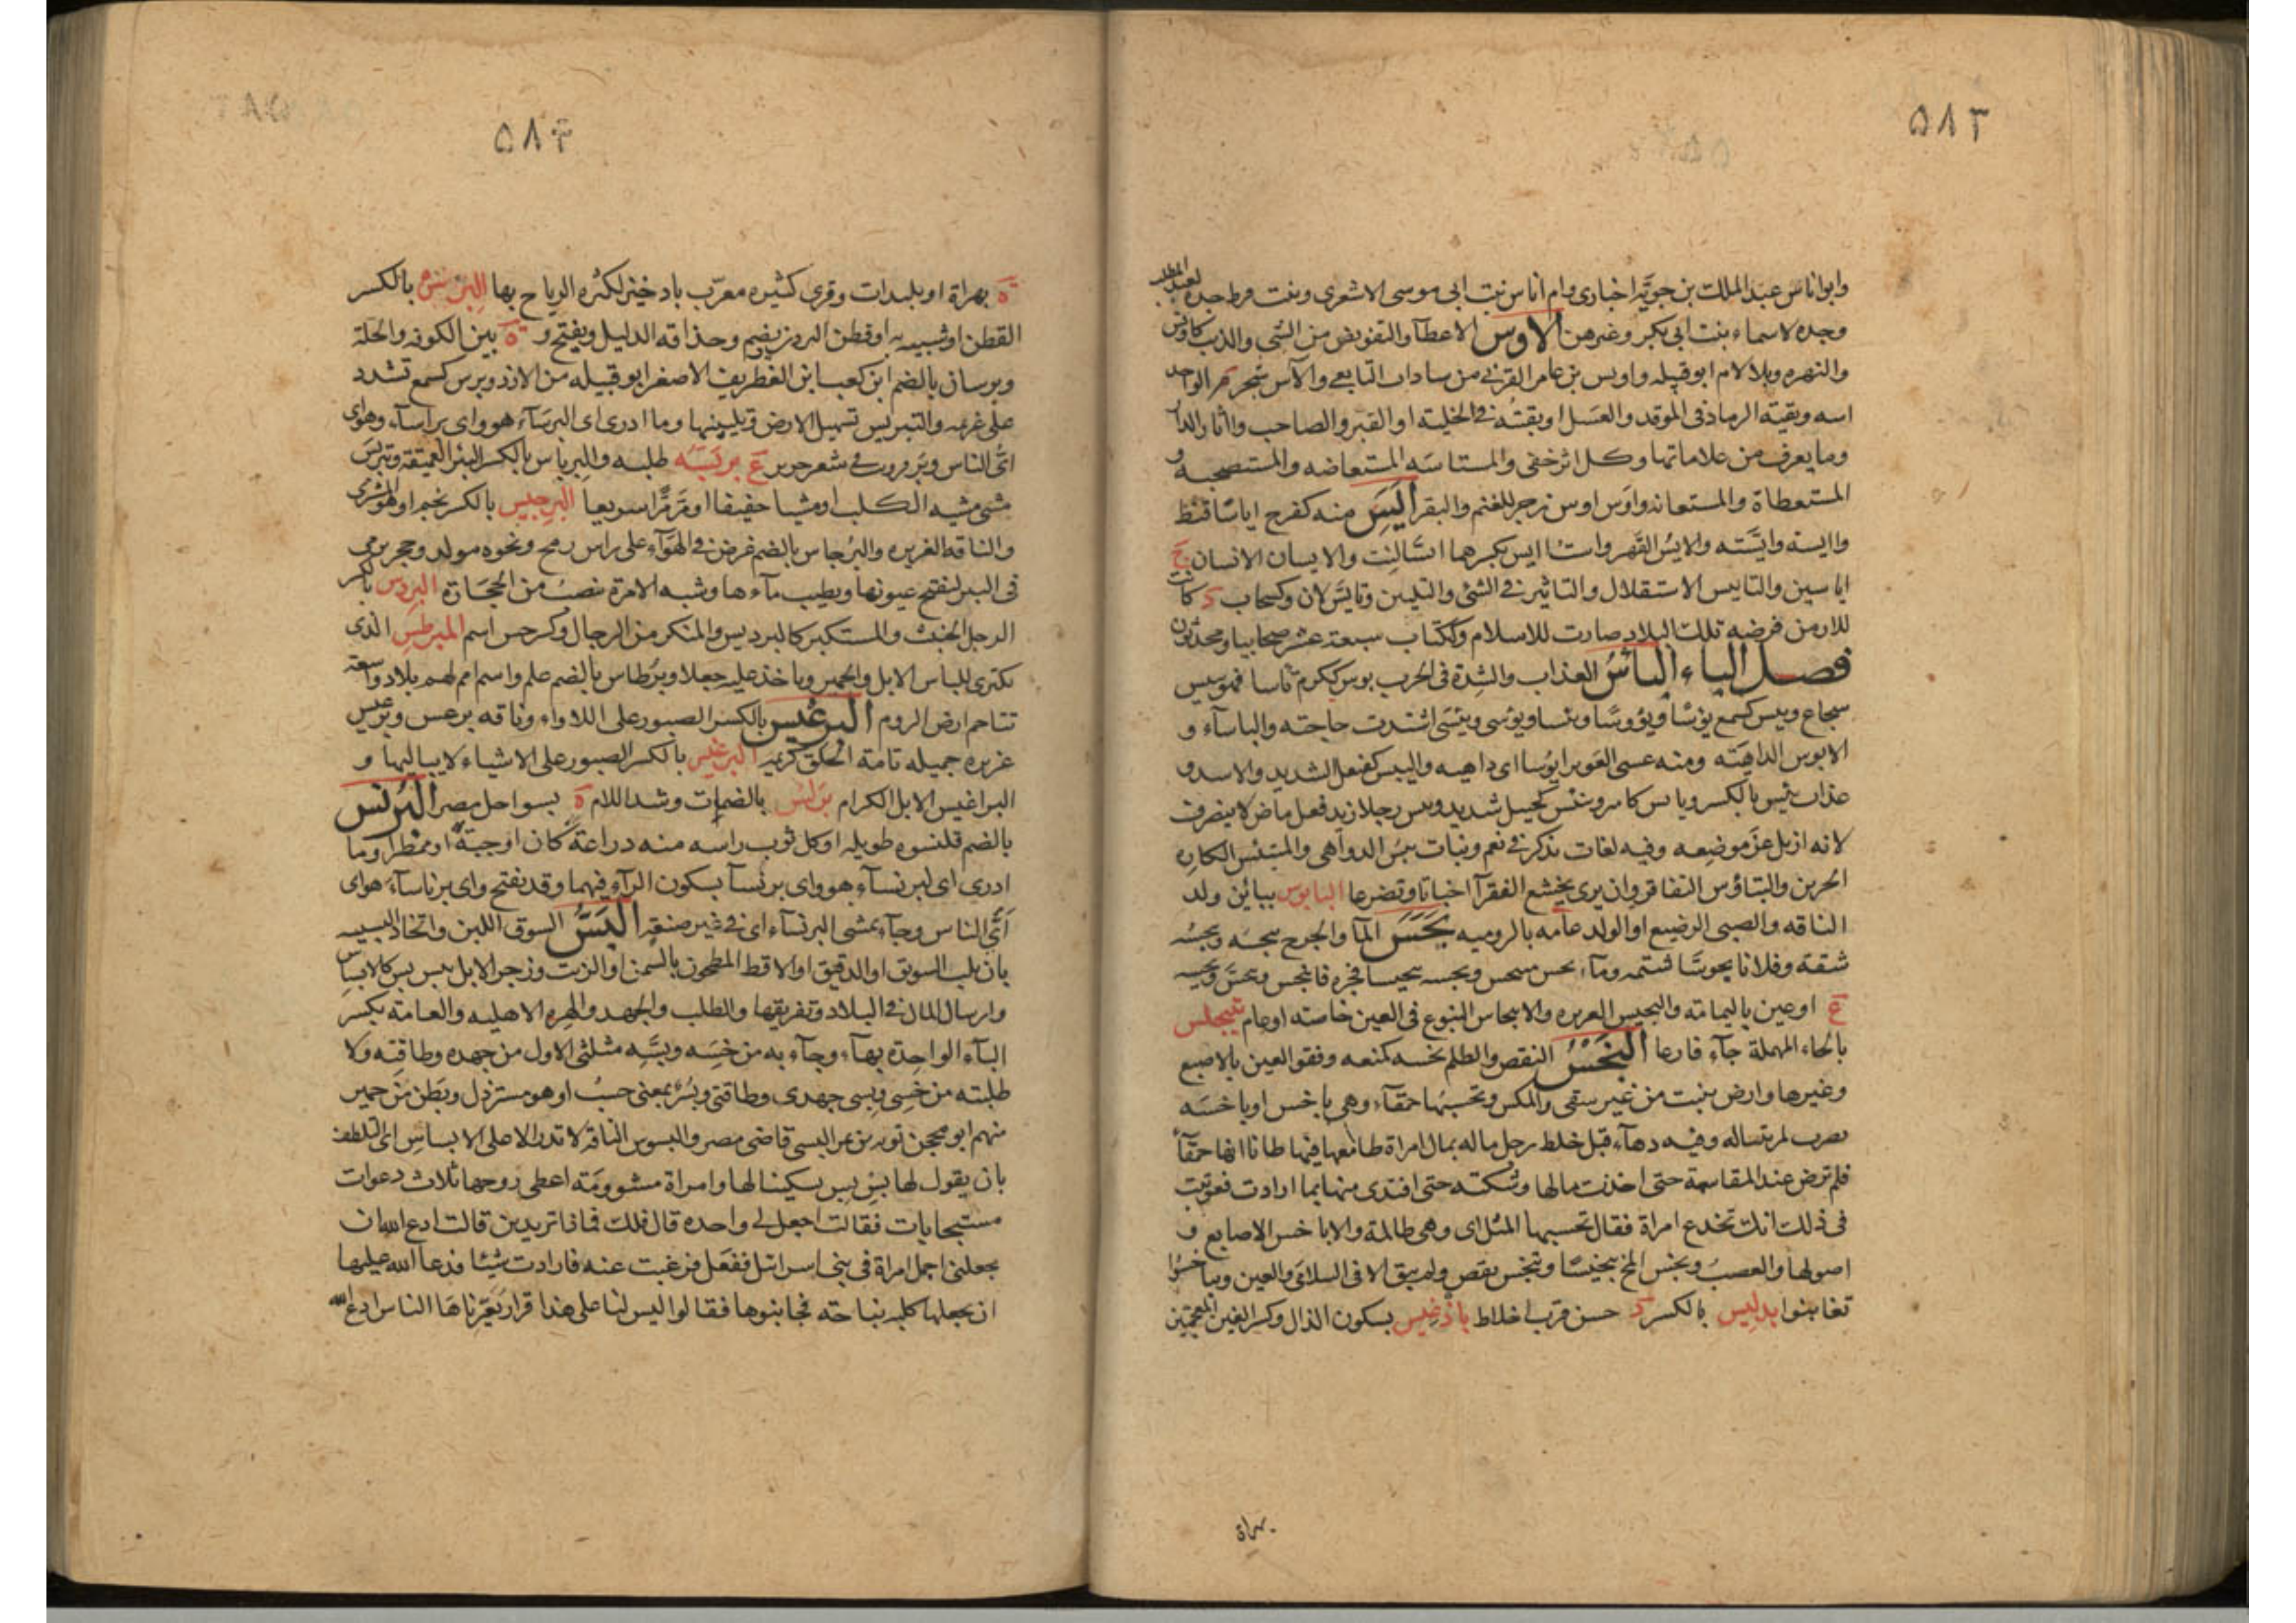 ٥٨٣
وابواناس عبد الملك بن جويّه اخبارى وام اناس بنت ابى موسى الاشعرى وبنت قرط جدة لعبد المطلب
وجده لاسماء بنت ابى بكر وغيرهن الاوس الاعطآ والتعويض من الشى والذيب كاويس
والنهزه وبلا لام ابو قبيله واويس بن عامر القرنى من سادات التابعى والآس شجر م الواحد
اسه وبقية الرماد فى الموقد والعسل او بقيته فى الخلية او القبر والصاحب واثار الدار
وما يعرف من علاماتها وكل اثر خفى والمستاسه المستعاضه والمستصحبه و
المستعطاة والمستعانه واوس اوس زجر للغنم والبقر أيس منه كفرح اياسا قنط
واايسته وايّسته والايس القهر واست ايس بكسرهما اى لنت والايسان الانسان ج
اياسين والتاييس الاستقلال والتاثير فى الشئ والتليين وتايس لان وكسحاب د كانت
للارمن فرضه تلك البلاد صارت للاسلام وككتاب سبعة عشر صحابيا ومحدثون
فصل الباء الباس العذاب والشدة فى الحرب بوس ككرم باسا فهو بيس
شجاع وبيس كسمع بؤسا وبؤوسا وبئسا وبؤسى وبيئسى اشتدت حاجته والباسآء و
الابوس الداهية ومنه عسى الغوير ابوسا اى داهيه والبيبس كفيعل الشديد والاسد و
عذاب بئيس بالكسر وباس كامير وبيئس كجيل شديد وبئس رجلا زيد فعل ماض لا يتصرف
لانه ازيل عن موضعه وفيه لغات تذكر فى نعم وبنات بئس الدواهى والمبتئس الكاره
الحزين والتباؤس التفاقر وان يرى تخشع الفقرآ اخباتا وتضرعا البابوس ببائين ولد
الناقه والصبى الرضيع او الولد عامه بالروميه بجس المآ والجرح يبجسه ويبجسه
شقه وفلانا بجوسا شتمه ومآء بجس منبجس وبجسه تبجيسا فجره فانبجس وتبجس وبجسه
ع او عين باليمامه والبجيس الغزيره والانبجاس النبوع فى العين خاصة او عام تبيحلس
بالحاء المهملة جآء فارعا البخس النقص والظلم بخسه كمنعه وفقو العين بالاصبع
وغيرها وارض تنبت من غير سقى والمكس وتحسبها حمقآء وهى باخس او باخسه
يضرب لمن يتباله وفيه دهآء قيل خلط رجل ماله بمال امراة طامعا فيها ظانا انها حمقآ
فلم ترض عند المقاسمة حتى اخذت مالها وشكته حتى افتدى منها بما ارادت فعوتب
فى ذلك انك تخدع امراة فقال تحسبها المثل اى وهى ظالمة والاباخس الاصابع و
اصولها والعصب وبخس المخ تبخيسا وتبخس نقص ولم يبق الا فى السلامى والعين وتباخسوا
تغابنوا بدليس بالكسر د حسن قرب اخلاط باذغيس بسكون الذال وكسر الغين المعجمتين
بهراة
٥٨٣
ة بهراة او بليدات وقرى كثيره معرّب بادخيز لكثره الرياح بها البرس بالكسر
القطن او شبيه به او قطن البردى ويضم وحذاقه الدليل ويفتح و ة بين الكوفه والحلة
وبرسان بالضم ابن كعب ابن الغطريف الاصغر ابو قبيله من الازد وبرس كسمع تشدد
على غريمه والتبريس تسهيل الارض وتليينها وما ادرى اى البرسآء هو واى براسآء وهو اى
اىّ الناس وبربروس فى شعر جرير ع بربسه طلبه والبرباس بالكسر البئر العميقة وتبربس
مشى مشيه الكلب او مشيا خفيفا او مر مرّا سريعا البرجيس بالكسر نجم او هو المشترى
والناقه الغزيره والبرجاس بالضم غرض فى الهوآء على راس رمح ونحوه مولد وحجر يرمى
فى البير لتفتح عيونها ويطيب مآءها وشبه الامرة تنصب من الحجارة البردس بالكسر
الرجل الخبيث والمستكبر كالبرديس والمنكر من الرجال وكزبرج اسم المبرطس الذى
يكترى للناس الابل والحمير وياخذ عليه جعلا وبرطاس بالضم علم واسم امم لهم بلاد واسعة
تتاخم ارض الروم البرعيس بالكسر الصبور على اللاواء وناقه برعس وبرعيس
غزيره جميله تامة الخلق كريمه البرغيس بالكسر الصبور على الاشياء لا يباليها و
البراغيس الابل الكرام برلس بالضمات وشد اللام ة بسواحل مصر البرنس
بالضم قلنسوه طويله او كل ثوب راسه منه دراعة كان او جبة او ممطرا وما
ادرى اى البرنسآء هو واى برنسآ بسكون الرآء فيهما وقد تفتح واى برناسآء هو اى
اىّ الناس وجآء يمشى البرنسآء اى فى غير صنعة البسّ السوق اللين واتخاذ البسيسه
بان يلت السويق او الدقيق او الاقط المطحون بالسمن او الزيت وزجر الابل ببس بس كالابساس
وارسال المال فى البلاد وتفريقها والطلب والجهد والهره الاهليه والعامة يكسر
البآء الواحدة بهآء وجآء به من حسه وبسه مثلثى الاول من جهده وطاقته ولا
طلبته من حسى وبسى جهدى وطاقتى وبس بمعنى حسب او هو مسترذل وبطن من حمير
منهم ابو محجن توبه بن نمر البسى قاضى مصر والبسوس الناقه لا تدر الا على الابساس اى التلطف
بان يقول لها بس بس تسكينا لها وامراة مشوومة اعطى زوجها ثلاث دعوات
مستجابات فقالت اجعل لى واحده قال فلك فماذا تريدين قالت ادع الله ان
يجعلنى اجمل امراة فى بنى اسرائيل ففعل فرغبت عنه فارادت شيئا فدعا الله عليها
ان يجعلها كلبه نباحة فجا بنوها فقالوا ليس لنا على هذا قرار يعيّرناها الناس ادع الله